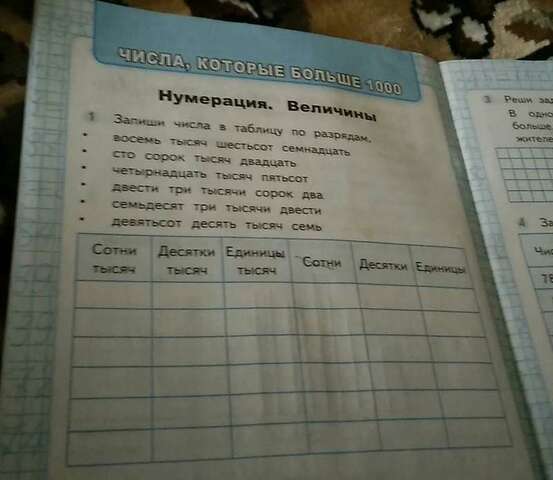 ЧИСЛА, КОТОРЫЕ БОЛЬШЕ 1000
Нумерация. Величины
1 Запиши числа в таблицу по разрядам.
• восемь тысяч шестьсот семнадцать
• сто сорок тысяч двадцать
• четырнадцать тысяч пятьсот
• двести три тысячи сорок два
• семьдесят три тысячи двести
• девятьсот десять тысяч семь
Сотни тысяч Десятки тысяч Единицы тысяч Сотни Десятки Единицы
3 Реши
В
больше
жителе
4
78